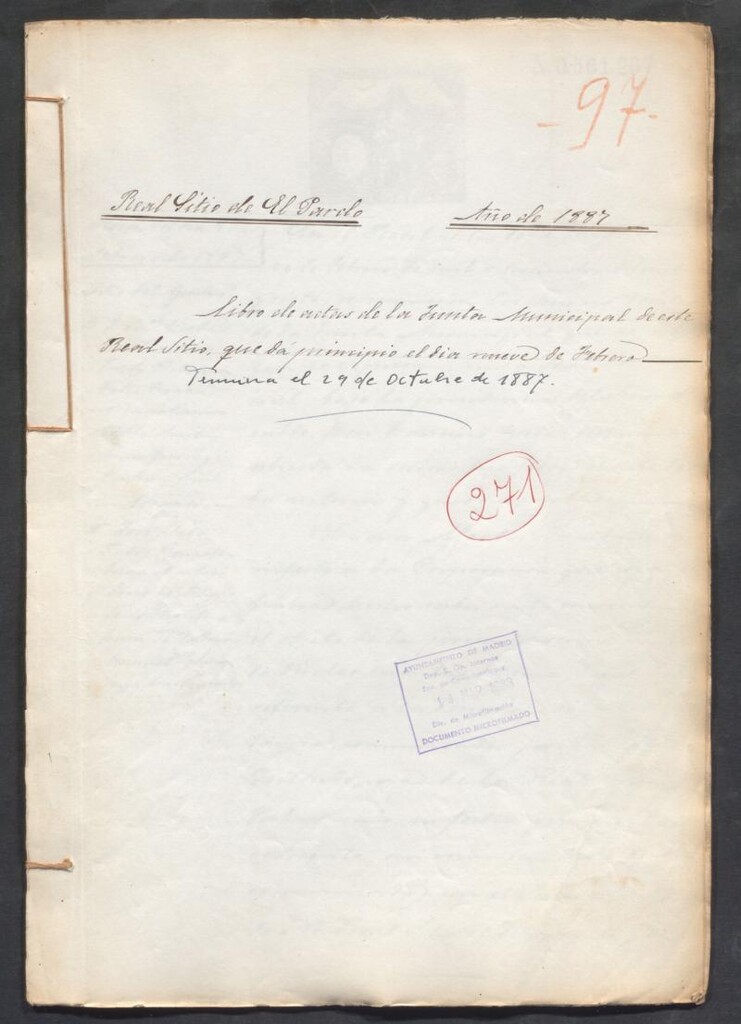 - 97 -
Real Sitio de El Pardo
Año de 1887
Libro de actas de la Junta Municipal de este
Real Sitio, que dá principio el dia nueve de Febrero
Termina el 29 de Octubre de 1887.
271
AYUNTAMIENTO DE MADRID
DOCUMENTO MICROFILMADO